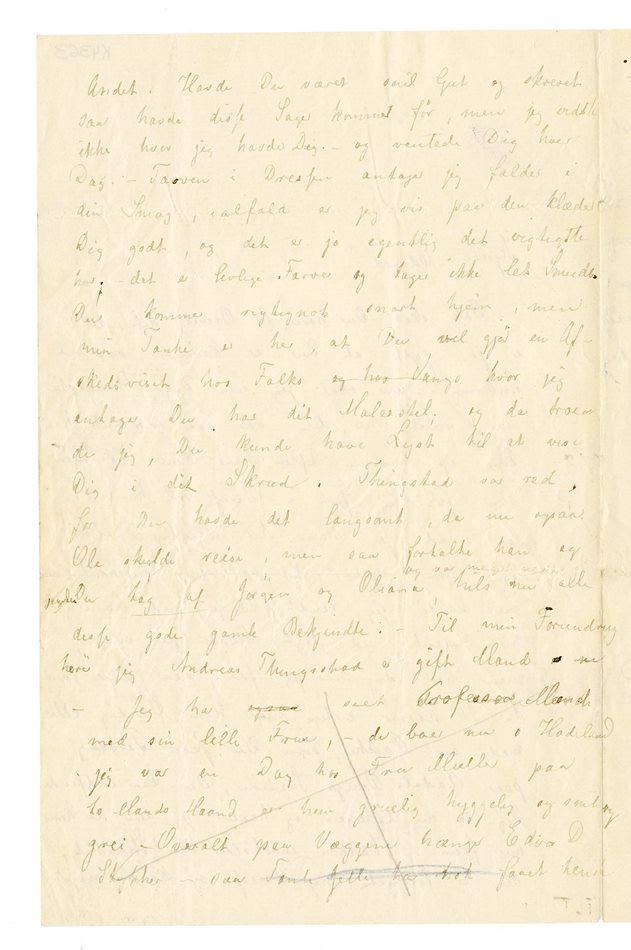 K4363
Andet. Havde Du været snil Gut og skrevet
saa havde disse Sager kommet før, men jeg vidste
ikke hvor jeg havde Dig. – og ventede Dig hver
Dag. – Farven i Dressen antager jeg falder i
din Smag, ialfald er jeg vis paa den klæder
Dig godt, og det er jo egentlig det vigtigste
her, – det er livlige Farver og tager ikke let Smuds.
Du kommer rigtignok snart hjem, men
min Tanke er her, at Du vel gjør en Af-
skedsvisit hos Falks og hos Vangs hvor jeg
antager Du har dit Malerstel, og da troe
de jeg, Du kunde have Lyst til at vise
Dig i dit Skrud. Thingstad var ræd,
for Du havde det langsomt, da nu ogsaa
Ole skulde reise, men saa fortalte han og
og var meget
Du tog af Jørgen og Oliana, hils nu alle
disse gode gamle Bekjendte. – Til min Forundring
hører jeg Andreas Thingstad er gift Mand
– Jeg har ogsaa seet Professor Munch
med sin lille Frue, – de boer nu i Hadeland
– jeg var en Dag hos Fru Mülle paa
to Mands Haand er hun gruelig hyggelig og snil og
grei – Overalt paa Væggene hænger Edvard D
– saa Tante Jette har nok faaet hende